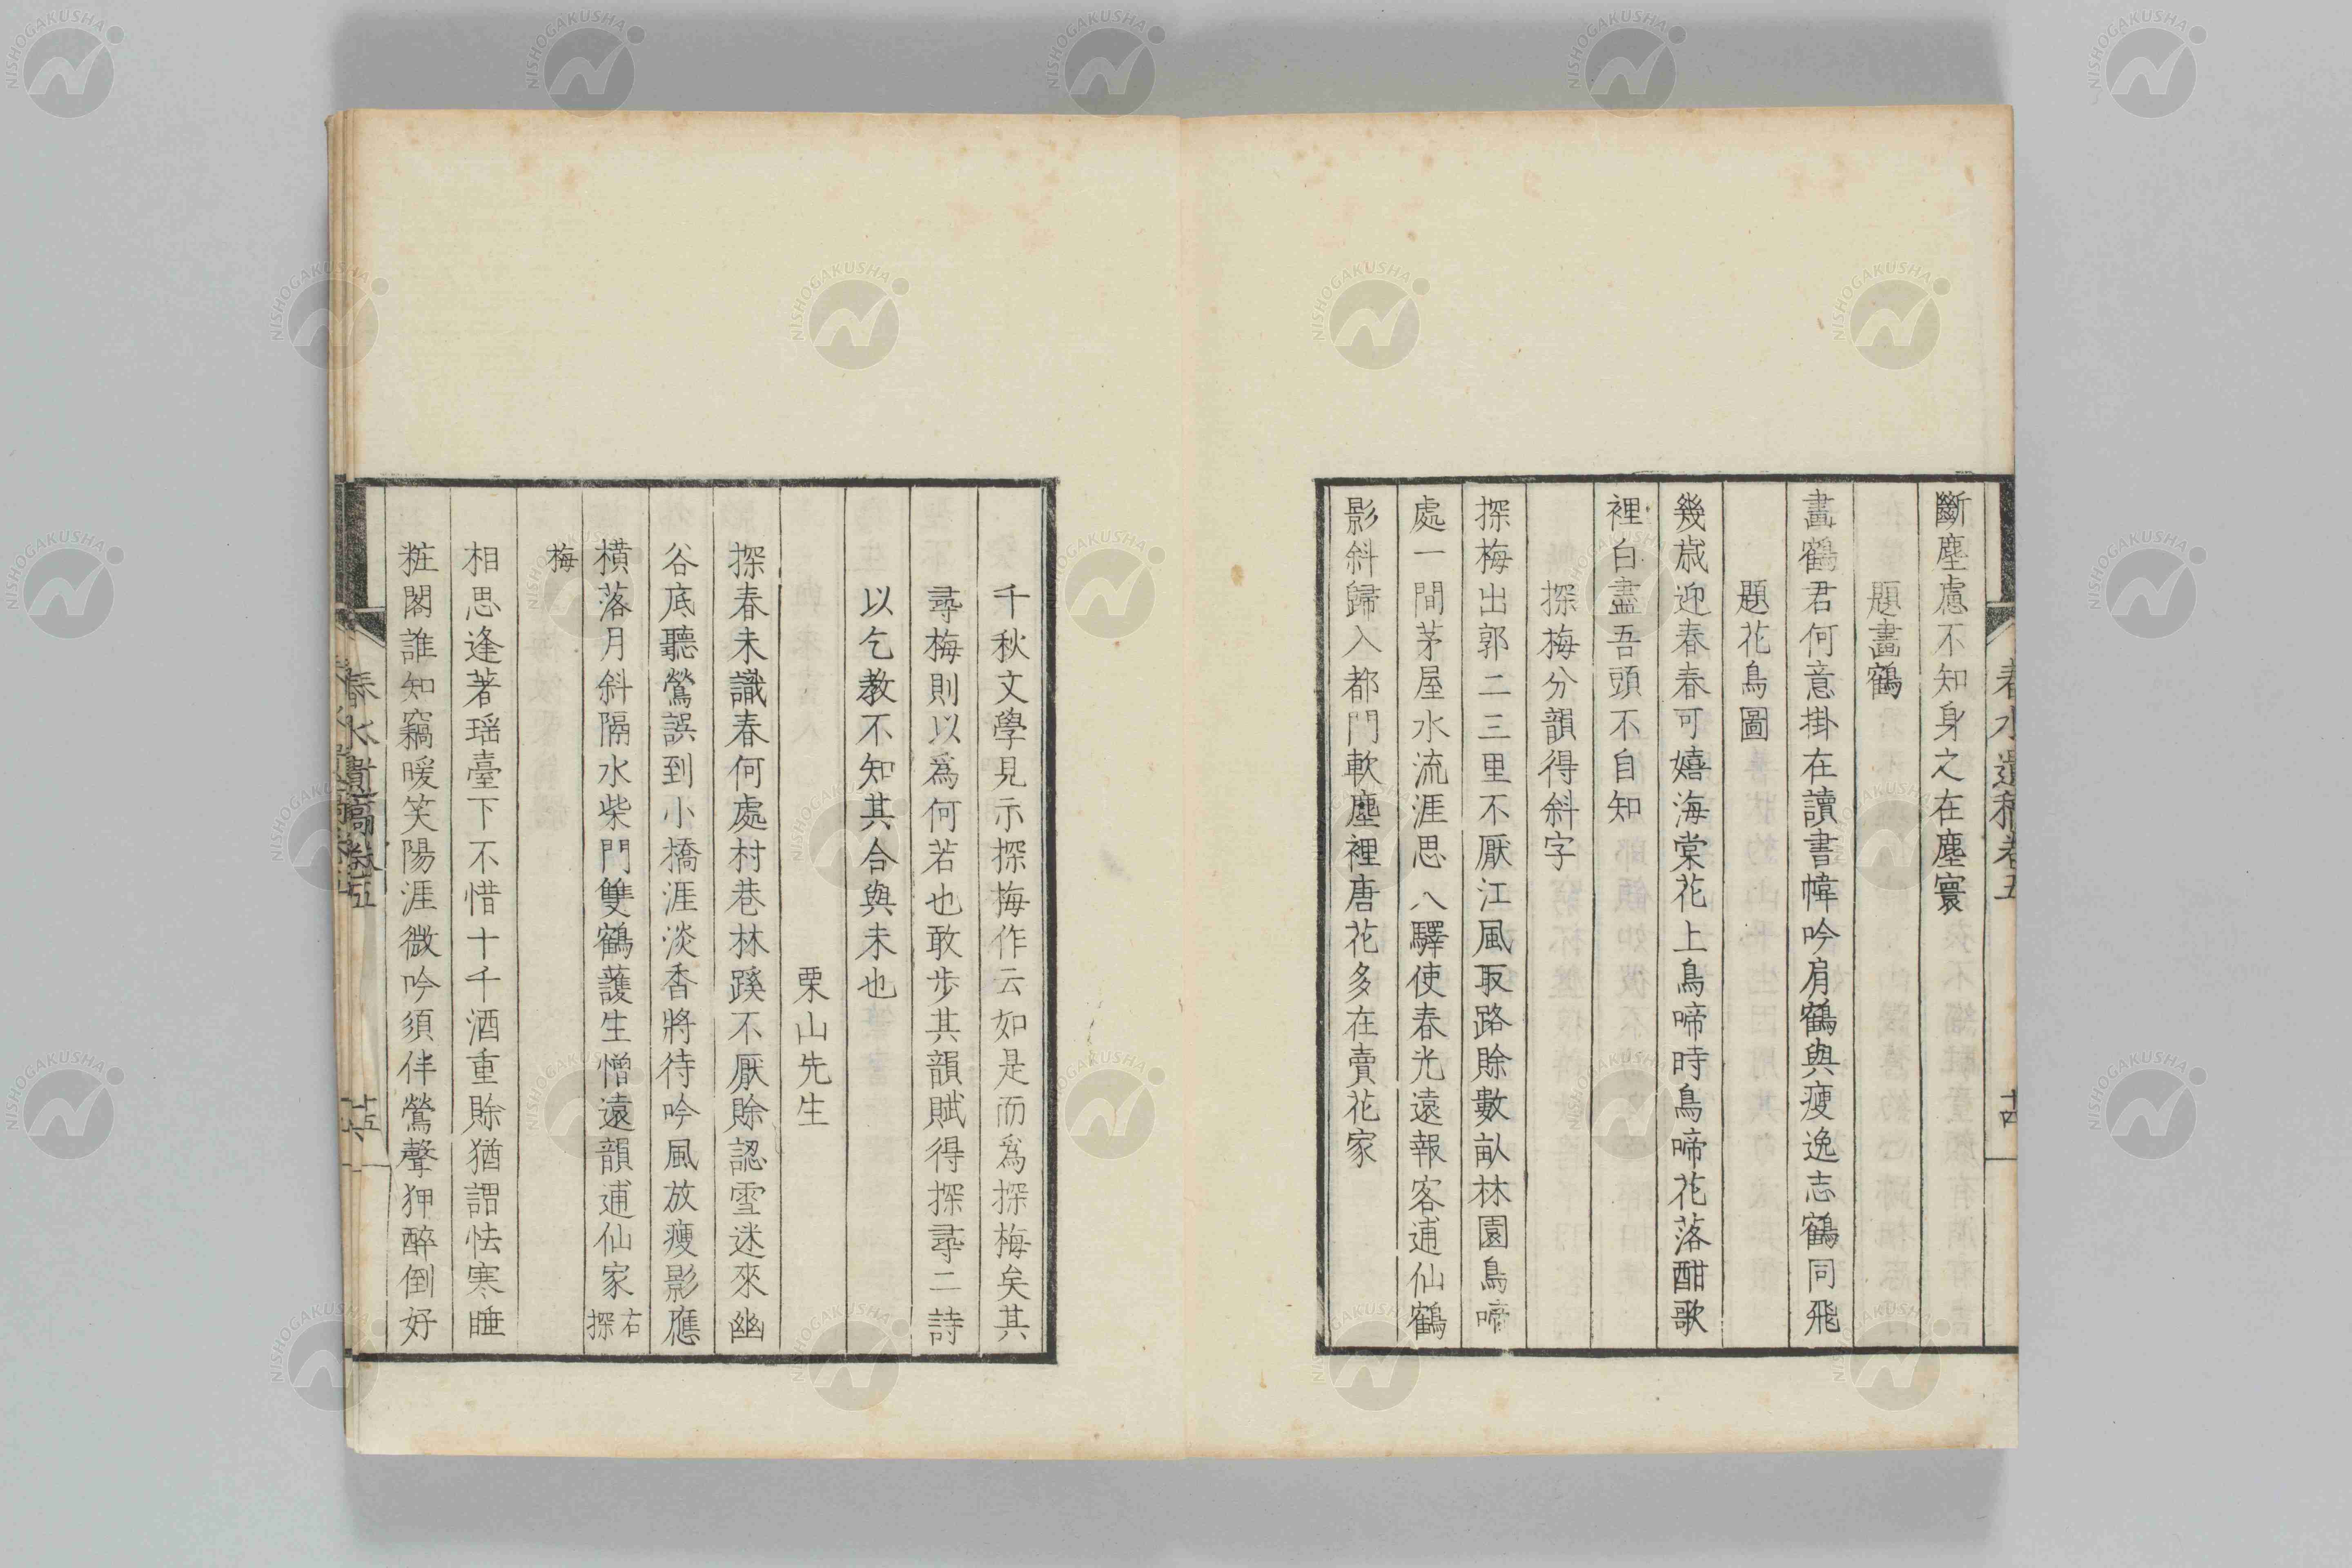 春水遺稿卷五
十四
斷塵慮不知身之在塵寰
題畫鶴
畫鶴君何意掛在讀書幃吟肩鶴與瘦逸志鶴同飛
題花鳥圖
幾歲迎春春可嬉海棠花上鳥啼時鳥啼花落酣歌
裡白盡吾頭不自知
探梅分韻得斜字
探梅出郭二三里不厭江風取路賒數畝林園鳥啼
處一間茅屋水流涯思入驛使春光遠報客逋仙鶴
影斜歸入都門軟塵裡唐花多在賣花家
千秋文學見示探梅作云如是而爲探梅矣其
尋梅則以爲何若也敢步其韻賦得探尋二詩
以乞教不知其合與未也
栗山先生
探春未識春何處村巷林蹊不厭賒認雪迷來幽
谷底聽鶯誤到小橋涯淡香將待吟風放瘦影應
橫落月斜隔水柴門雙鶴護生憎遠韻逋仙家右探
梅
相思逢著瑶臺下不惜十千酒重賒猶謂怯寒睡
粧閣誰知竊暖笑陽涯微吟須伴鶯聲狎醉倒好
春水遺稿卷五
十五
NISHOGAKUSHA